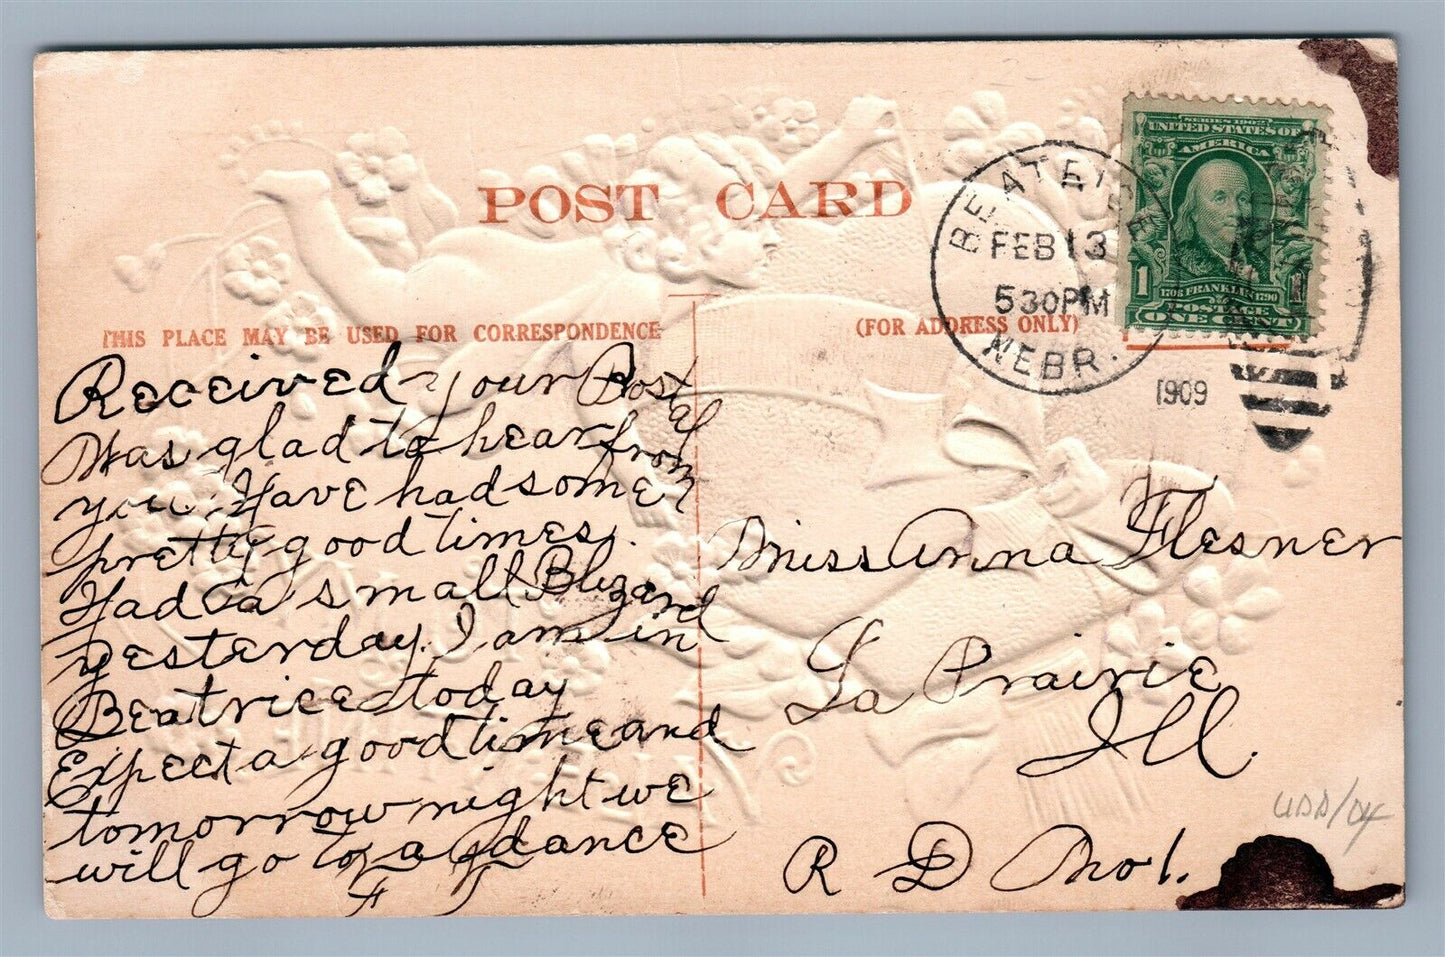 POST CARD
THIS PLACE MAY BE USED FOR CORRESPONDENCE
(FOR ADDRESS ONLY)
BEATRICE
FEB 13
530PM
NEBR.
1909
SERIES 1902
UNITED STATES OF
AMERICA
1 1
1706 FRANKLIN 1790
POSTAGE
ONE CENT
Received your Postal
Was glad to hear from
you. Have had some
pretty good times.
Had a small Blizard
yesterday. I am in
Beatrice today
Expect a good time and
tomorrow night we
will go to a dance
Miss Anna Flesner
La Prairie
Ill.
R D No 1.